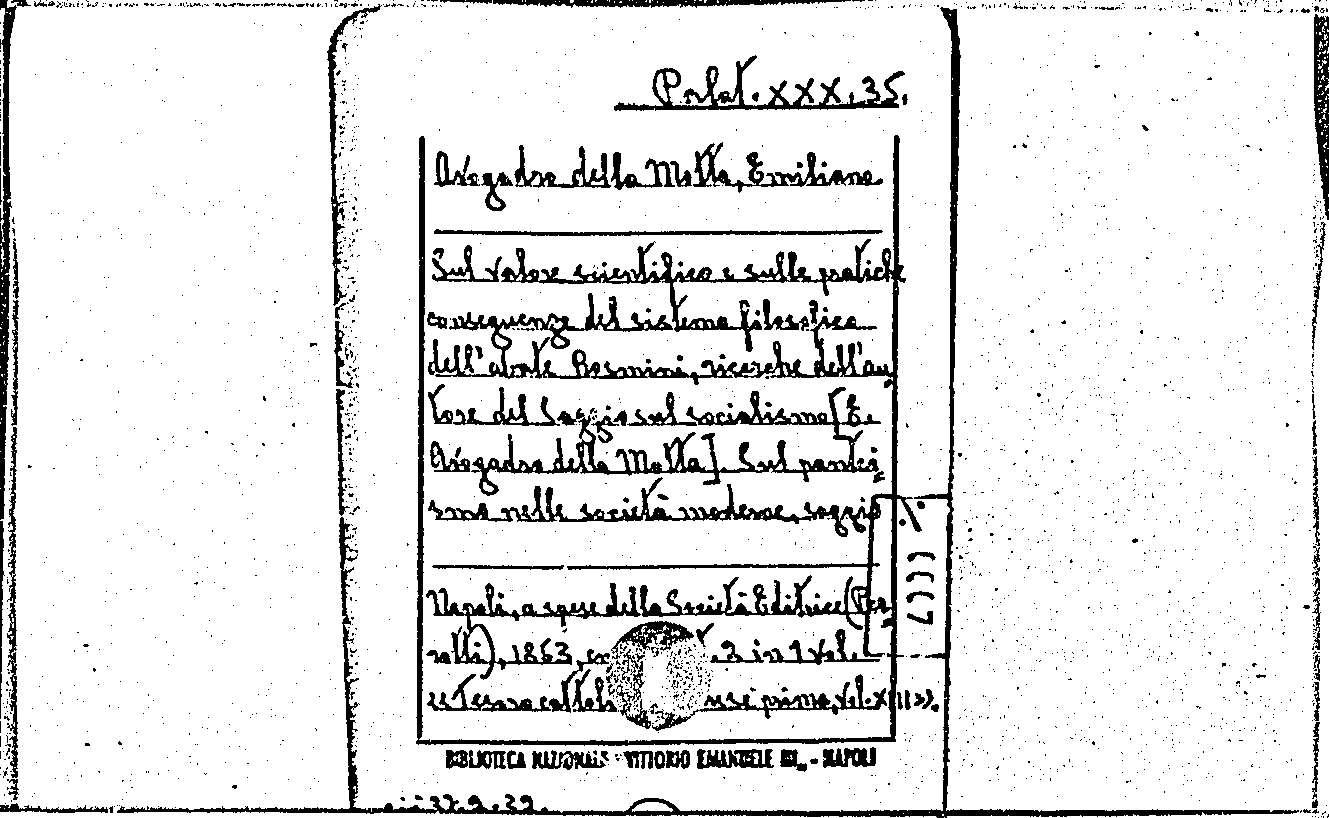 Prlat. XXX. 35.
Avogadro della Motta, Emiliano
Sul valore scientifico e sulle pratiche
conseguenze del sistema filosofico
dell'abate Rosmini, ricerche dell'au
tore del Saggio sul socialismo [E.
Avogadro della Motta]. Sul pantei
smo nelle società moderne, saggio
Napoli, a spese della Società Editrice (Per
rotti), 1863, t. 2 in 1 vol.
prima, vol. XIII».
BIBLIOTECA NAZIONALE - VITTORIO EMANUELE III„ - NAPOLI
37.9.32.